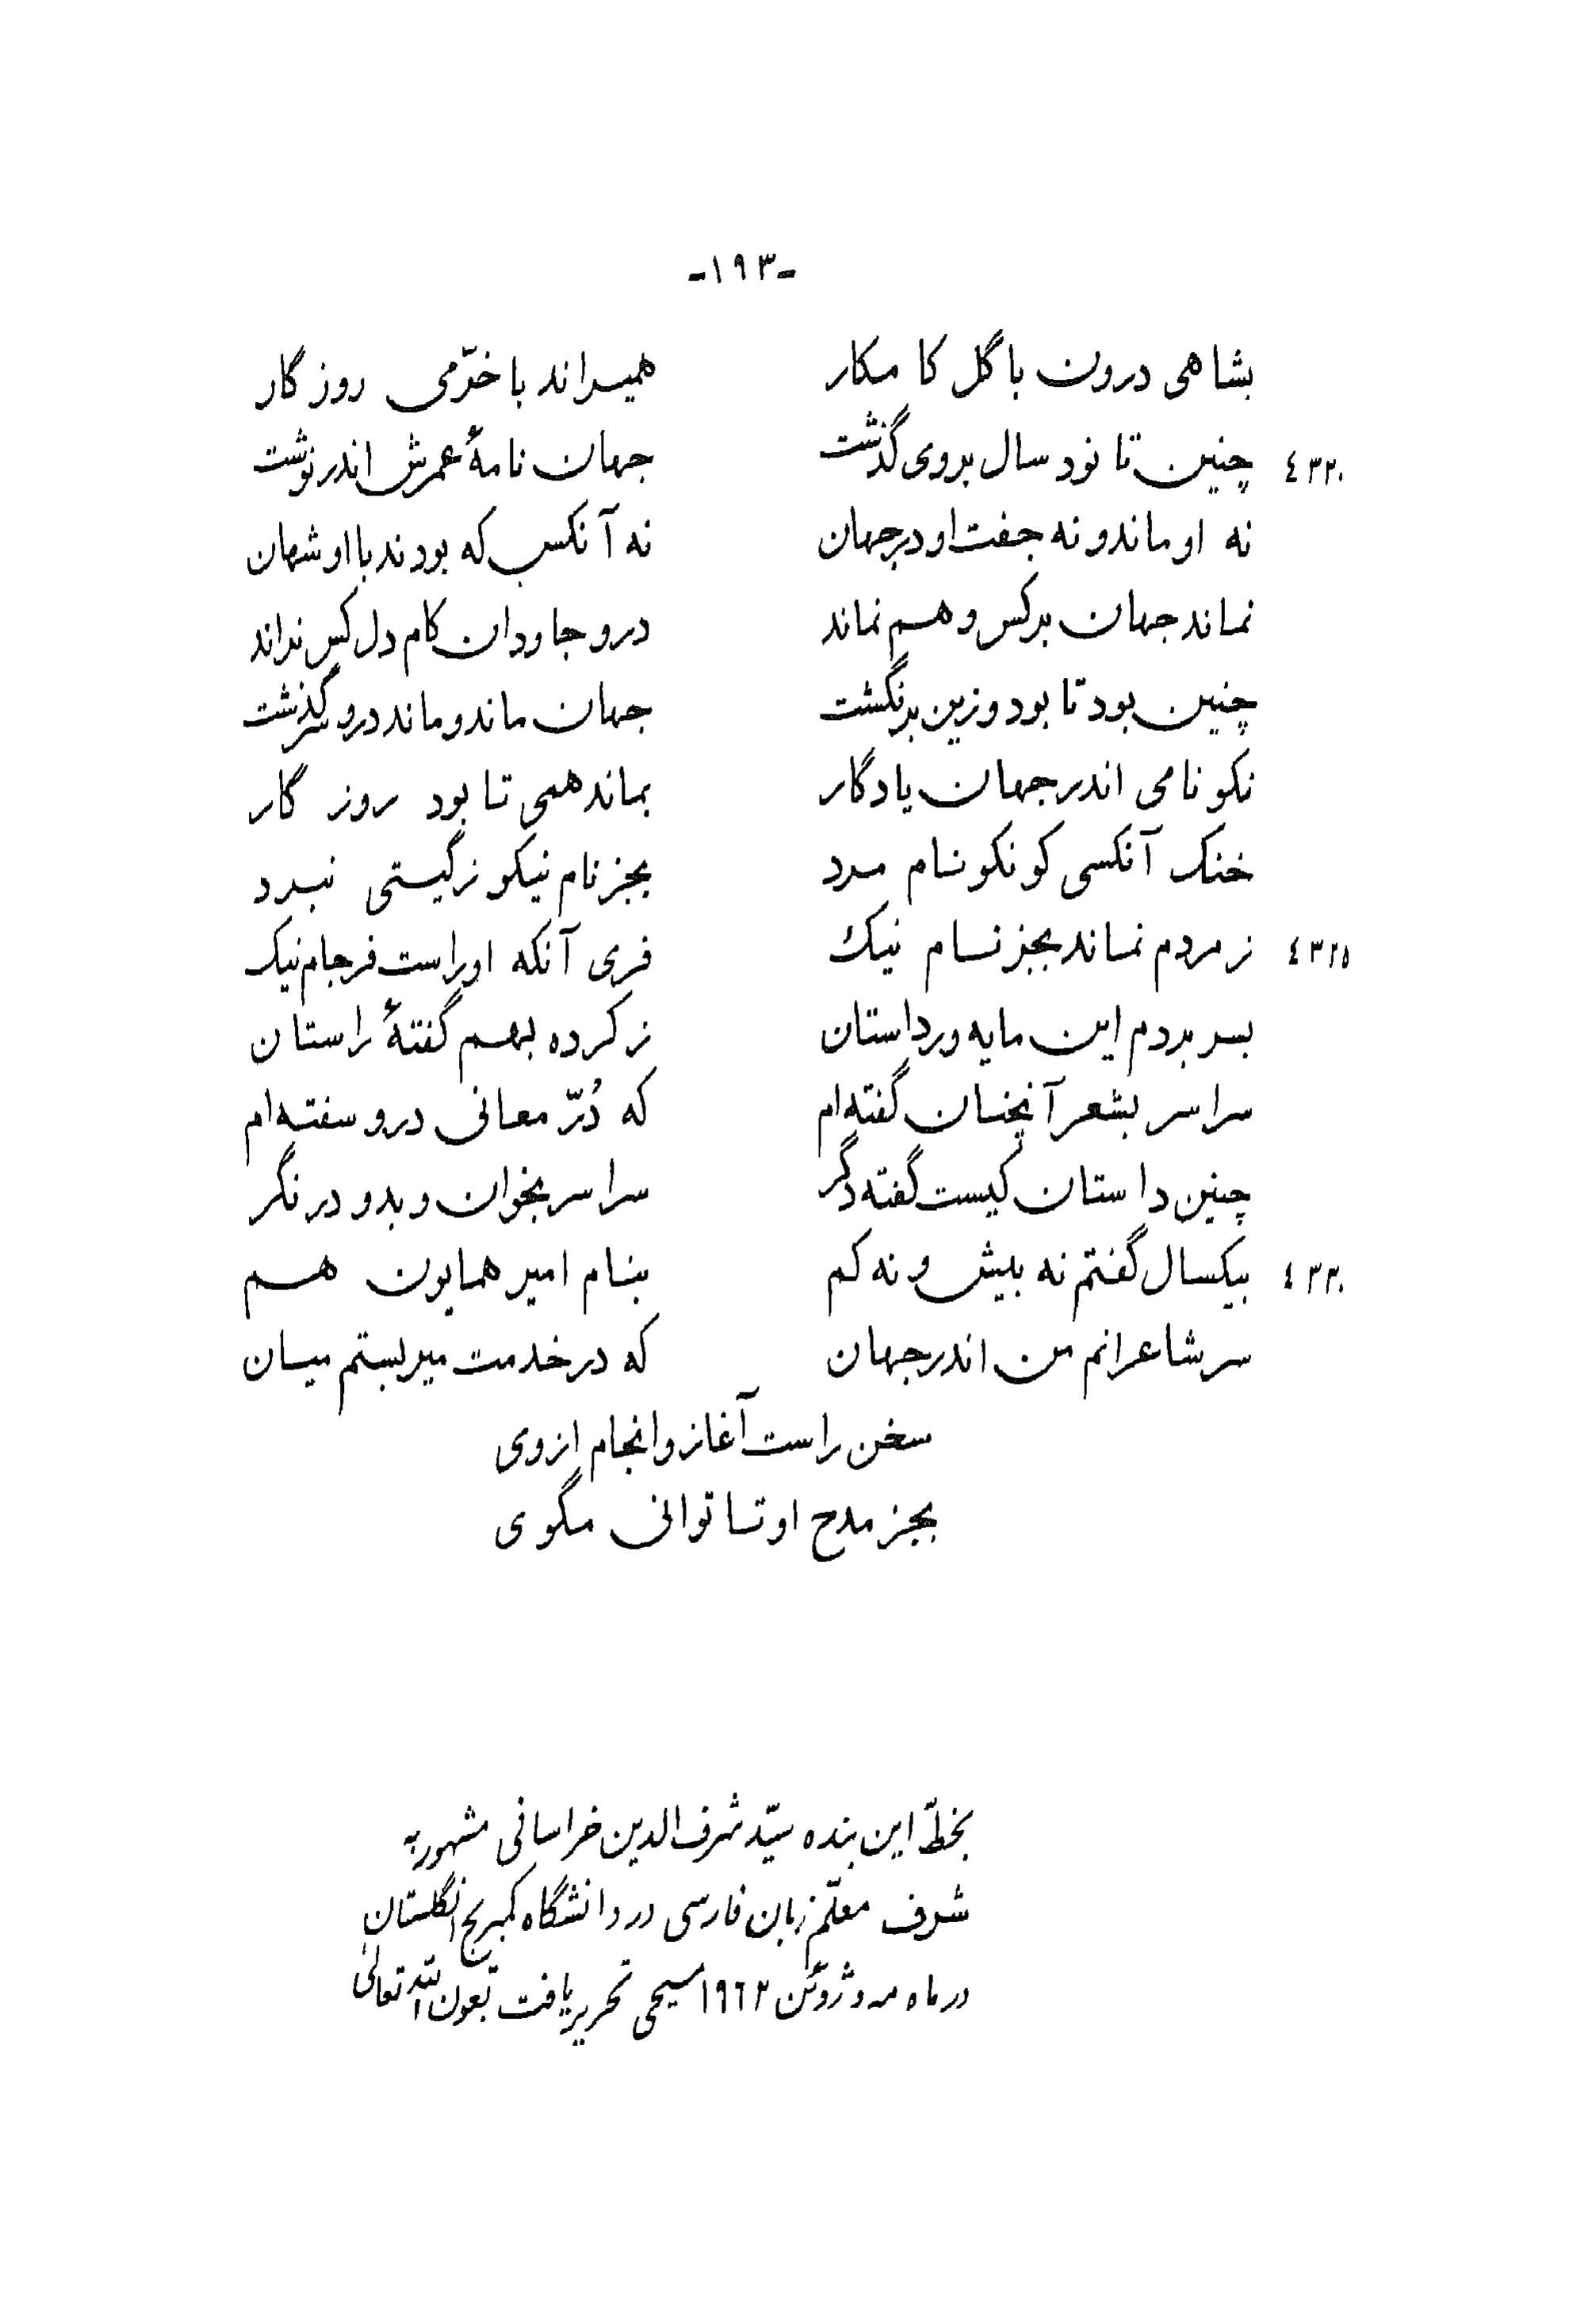 -۱۹۳-
بشاهی درون با گل کامکار همیراند با خرّمی روزگار
٤٣٢٠ چنین تا نود سال بروی گذشت جهان نامهٔ عمرش اندر نوشت
نه او ماند و نه جفت او در جهان نه آنکس که بودند با او شهان
نماند جهان بر کس و هم نماند درو جاودان کام دل کس نراند
چنین بود تا بود و زین بر نگشت جهان ماند و ماند درو سرگذشت
نکو نامی اندر جهان یادگار بماند همی تا بود روزگار
خنک آنکسی کو نکو نام مرد بجز نام نیکو ز گیستی نبرد
٤٣٢٥ ز مردم نماند بجز نام نیک فری آنکه او راست فرجام نیک
بسر بردم این مایه ور داستان ز کرده بهم گفتهٔ راستان
سراسر بشعر آنچنان گفته‌ام که دُرّ معانی درو سفته‌ام
چنین داستان کیست گفته دگر سراسر بخوان و بدو در نگر
٤٣٣٠ بیکسال گفتم نه بیش و نه کم بنام امیر همایون هم
سر شاعرانم من اندر جهان که در خدمت میر بستم میان
سخن راست آغاز و انجام ازوی
بجز مدح او تا توانی مگوی
بخطّ این بنده سیّد شرف الدین خراسانی مشهور به
شرف معلّم زبان فارسی در دانشگاه کمبریج انگلستان
در ماه مه و ژوئن ۱۹٦۲ مسیحی تحریر یافت بعون الله تعالیٰ